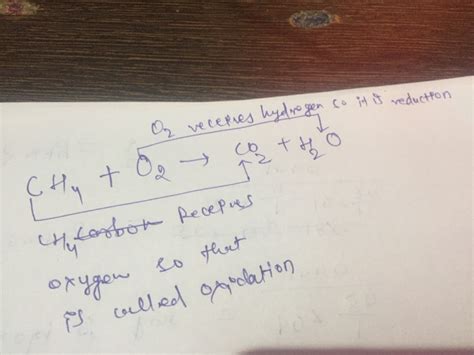 O₂ receives hydrogen so it is reduction
CH₄ + O₂ → CO₂ + H₂O
CH₄ carbon receives
oxygen so that
is called oxidation